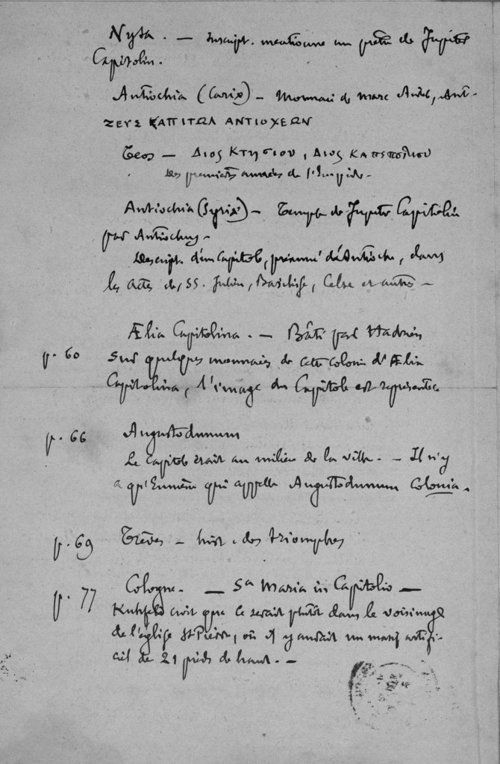 Nysa. — Inscript. mentionne un prêtre de Jupiter
Capitolin.
Antiochia (Carie) — Monnaie de Marc Aurèle, Ant-
ΖΕΥΣ ΚΑΠΙΤΩΛ ΑΝΤΙΟΧΕΩΝ
Teos — ΔΙΟΣ ΚΤΗΣΙΟΥ, ΔΙΟΣ ΚΑΠΕΤΩΛΙΟΥ
des premières années de l'Empire.
Antiochia (Syrie) — Temple de Jupiter Capitolin
par Antiochus —
Descript. d'un Capitole, d'Antioche, dans
les actes de, SS. Julien, Basilisse, Celse et autres —
Ælia Capitolina. — Bâti par Hadrien
p. 60 Sur quelques monnaies de cette colonie d'Ælia
Capitolina, l'image du Capitole est représentée
p. 66 Augustodunum
Le Capitole était au milieu de la ville. — Il n'y
a qu'Eumène qui appelle Augustodunum Colonia.
p. 69 Trèves — hist. des triomphes
p. 77 Cologne. — Sa Maria in Capitolio —
croit que ce serait plutôt dans le voisinage
de l'église St Pierre, où il y aurait un massif artifi-
ciel de 21 pieds de haut. —